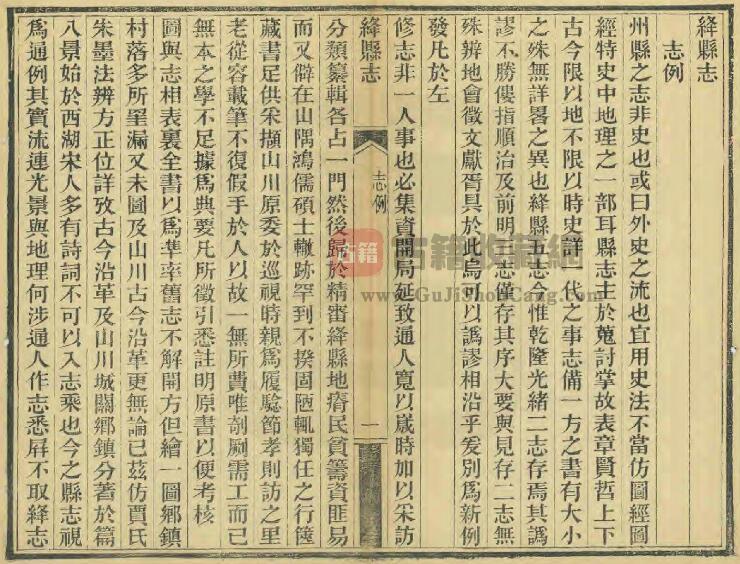 絳縣志
志例
州縣之志非史也或曰外史之流也宜用史法不當仿圖經圖
經特史中地理之一部耳縣志主於蒐討掌故表章賢哲上下
古今限以地不限以時史詳一代之事志備一方之書有大小
之殊無詳畧之異也絳縣五志今惟乾隆光緒二志存焉其譌
謬不勝僂指順治及前明二志僅存其序大要與見存二志無
殊辨地會徵文獻胥具於此烏可以譌謬相沿乎爰別爲新例
發凡於左
修志非一人事也必集資開局延致通人寬以歲時加以采訪
絳縣志
志例
一
分類纂輯各占一門然後歸於精審絳縣地瘠民貧籌資匪易
而又僻在山隅鴻儒碩士轍跡罕到不揆固陋輒獨任之行篋
藏書足供采擷山川原委於巡視時親爲履騐節孝則訪之里
老從容載筆不復假手於人以故一無所費唯剞劂需工而已
無本之學不足據爲典要凡所徵引悉註明原書以便考核
圖與志相表裏全書以爲準率舊志不解開方但繪一圖鄉鎮
村落多所罣漏又未圖及山川古今沿革更無論已茲仿賈氏
朱墨法辨方正位詳攷古今沿革及山川城關鄉鎮分著於篇
八景始於西湖宋人多有詩詞不可以入志乘也今之縣志視
爲通例其實流連光景與地理何涉通人作志悉屏不取絳志
古籍
古籍收藏網
www.GuJiShouCang.com